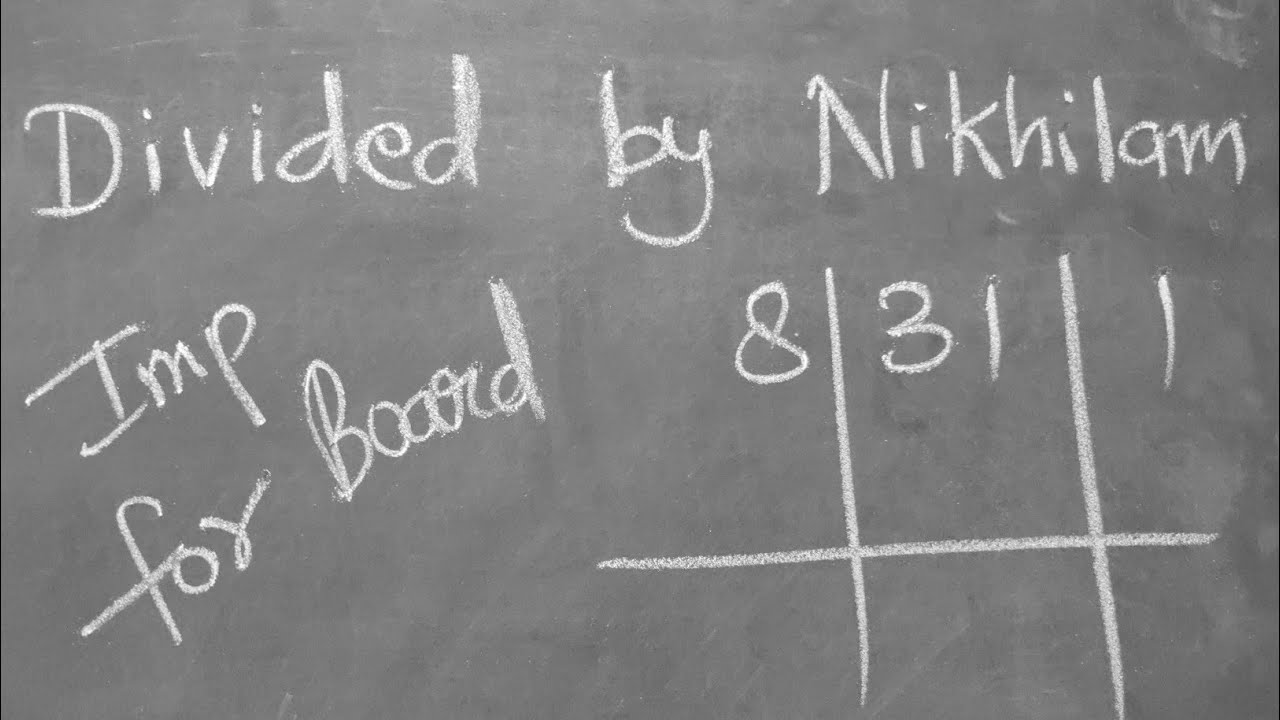 Divided by Nikhilam
Imp
for Board
8 31 1